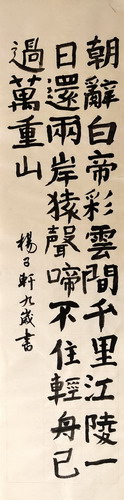 朝辭白帝彩雲間千里江陵一
日還兩岸猿聲啼不住輕舟已
過萬重山
楊子軒九歲書